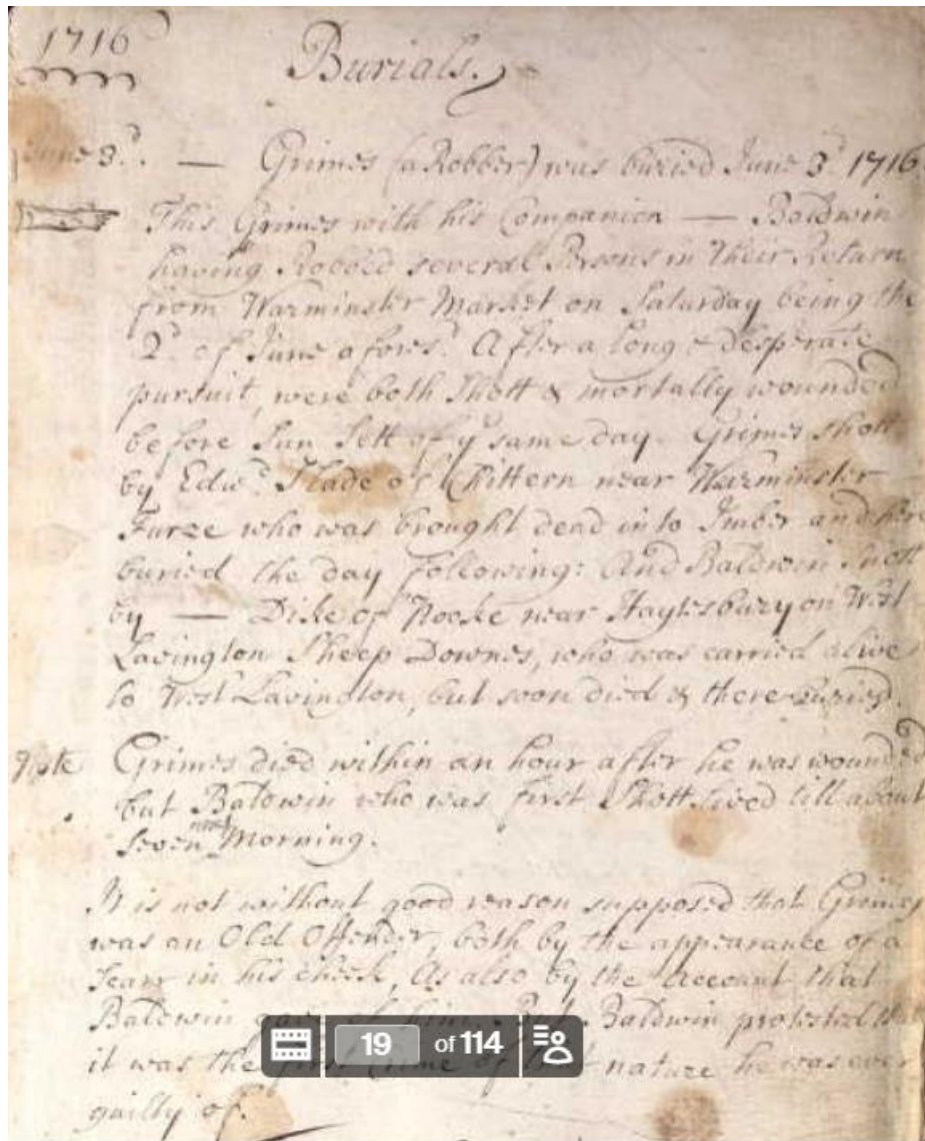 1716
Burials.
June 3d. — Grimes (a Robber) was buried June 3d 1716
This Grimes with his Companion — Baldwin
having Robbed several Persons in their Return
from Warminster Market on Saturday being the
2d of June afores.d After a long & desperate
pursuit, were both Shott & mortally wounded
before Sun Sett of ye same day. Grimes shott
by Edwd. Slade of Chittern near Warminster
Furze who was brought dead into Imber and here
buried the day following: And Baldwin shott
by — Dike of near Haytesbury on West
Lavington Sheep Downes, who was carried alive
to West Lavington, but soon died & there buried.
Note Grimes died within an hour after he was wounded
but Baldwin who was first Shott lived till about
seven next Morning.
It is not without good reason supposed that Grimes
was an Old Offender, both by the appearance of a
Scarr in his cheek, As also by the Account that
Baldwin gave of him. But Baldwin protested that
it was the first Crime of that nature he was ever
guilty of.
19 of 114